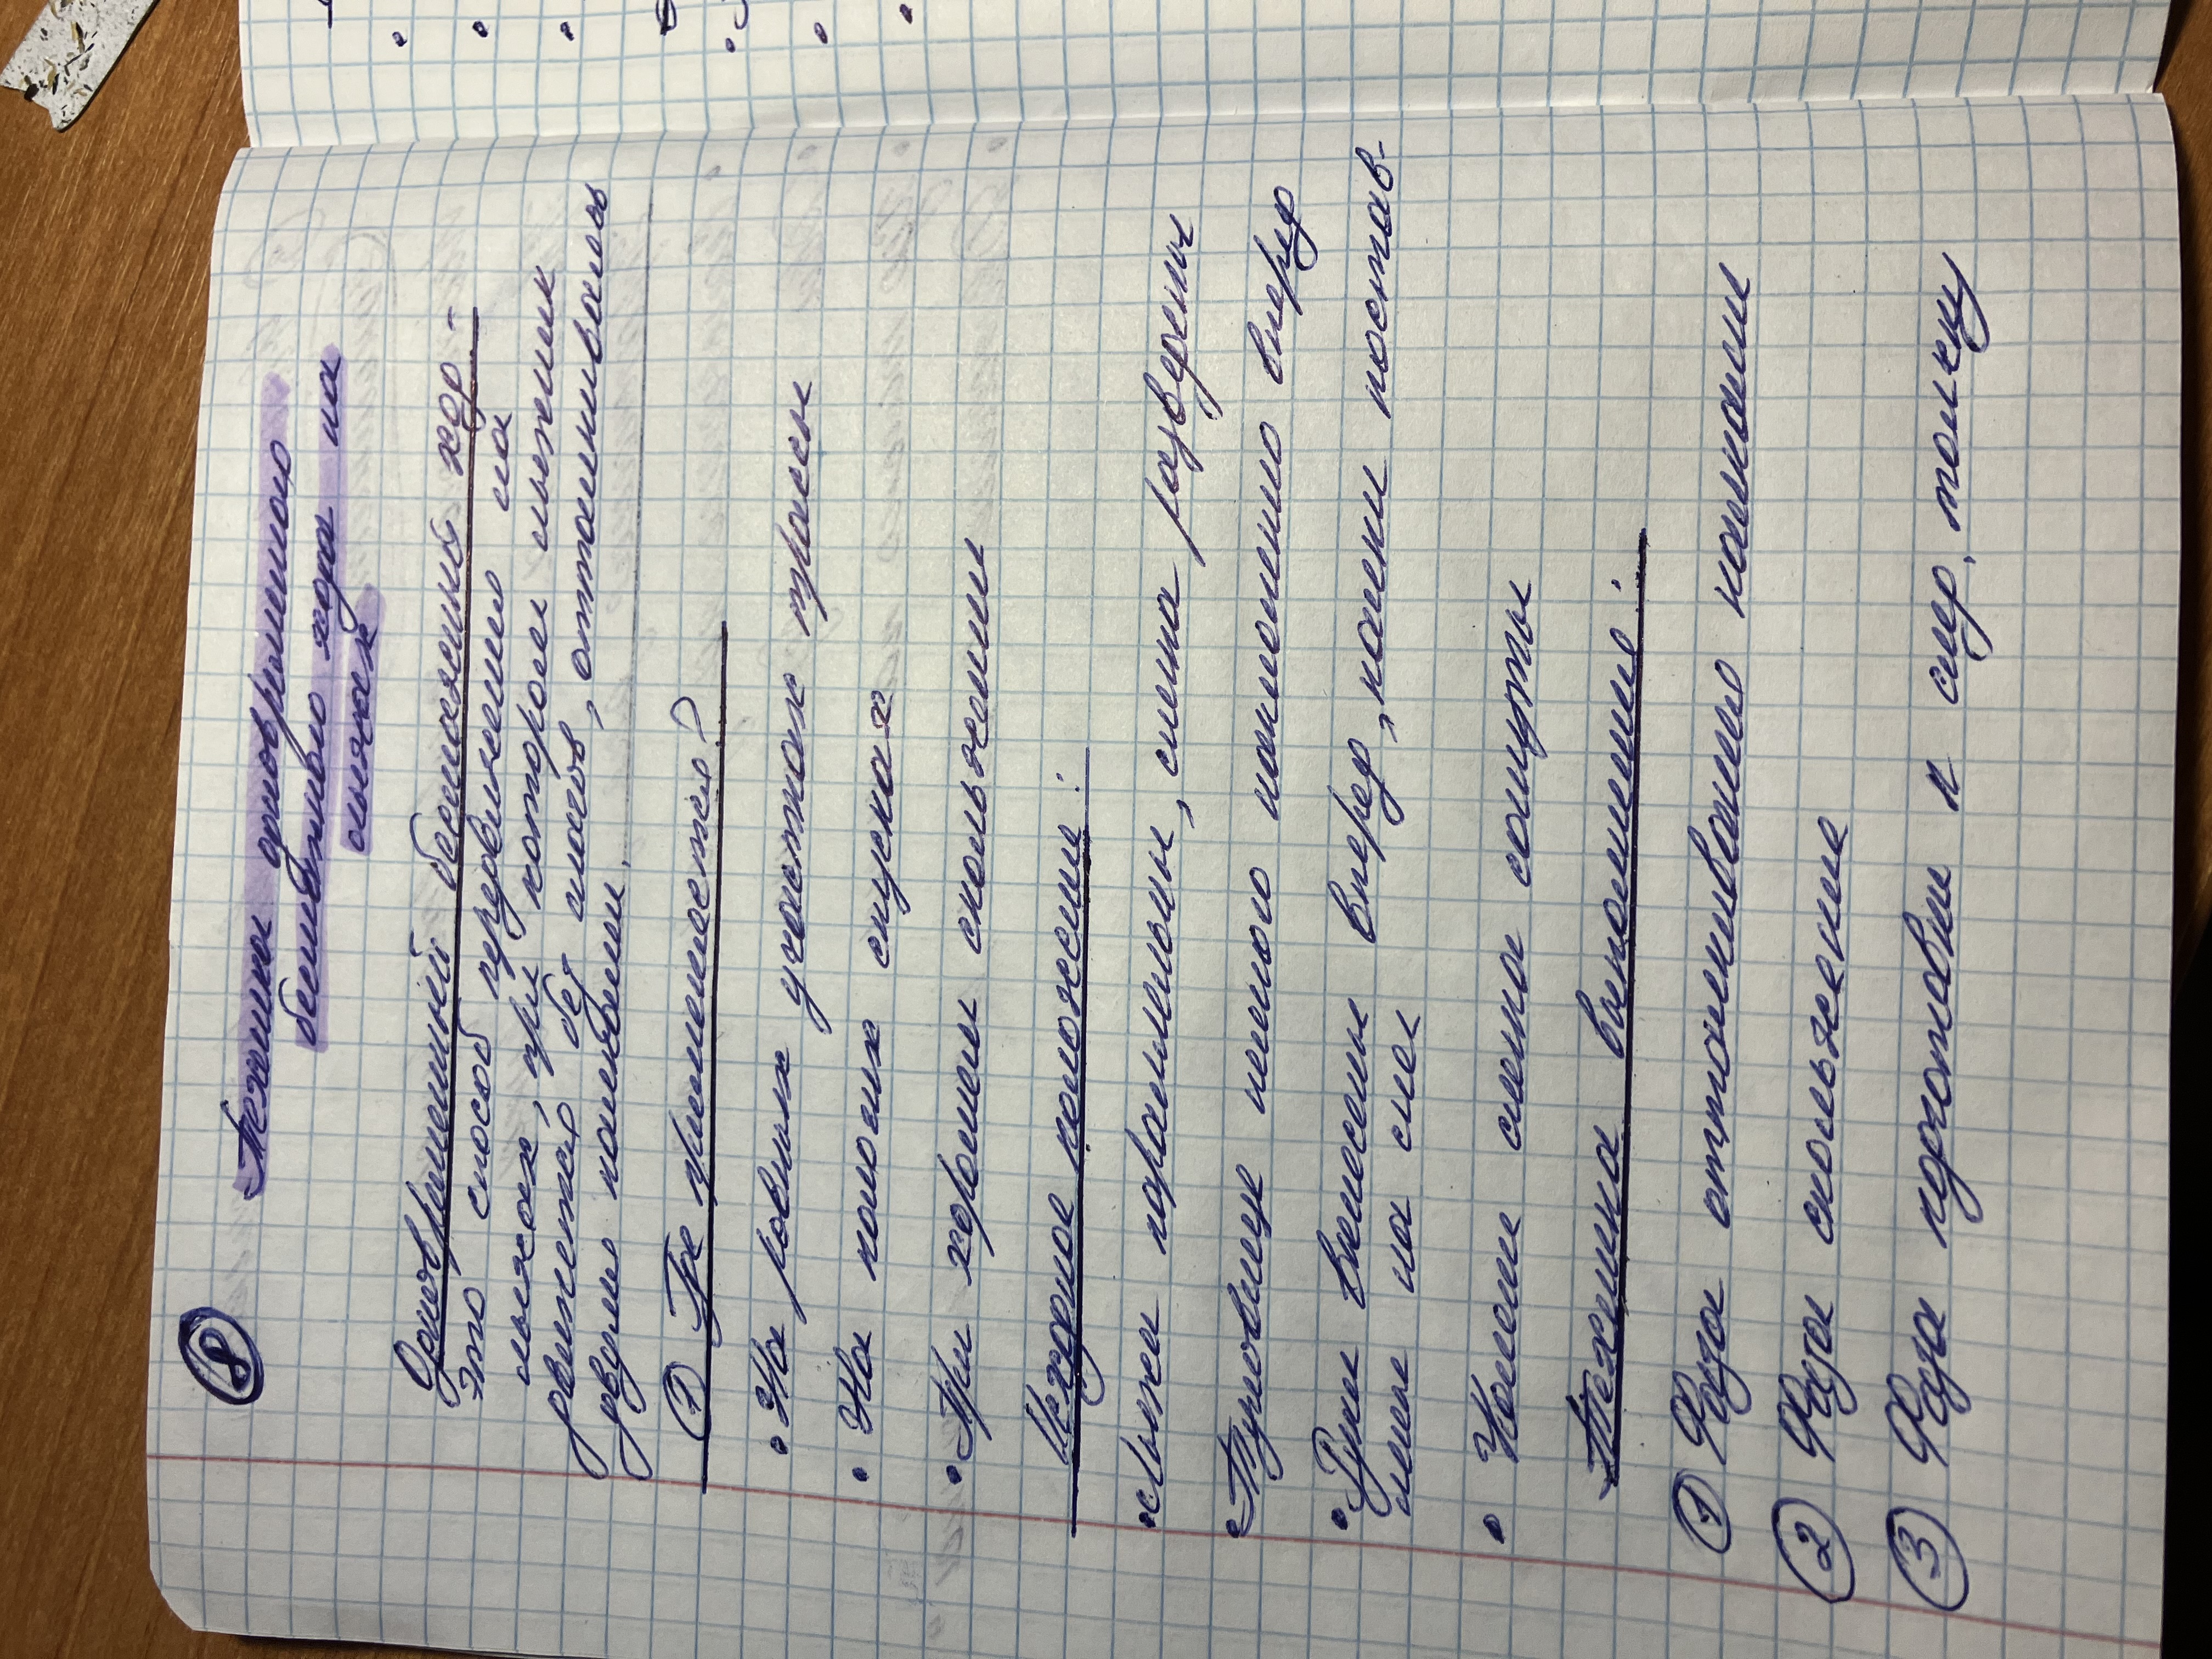 8
Техника одновременного
бесшажного хода на
лыжах
Одновременный бесшажный ход -
это способ передвижения на
лыжах, при котором лыжник
движется без шагов, отталкиваясь
двумя палками.
1 Где применяется?
• На ровных участках трассы
• На пологих спусках
• При хорошем скольжении
Исходное положение:
• Лыжи параллельны, слегка разведены
• Туловище немного наклонено вперед
• Руки вынесены вперед, палки постав-
лены на снег
• Колени слегка согнуты
Техника выполнения:
1 Фаза отталкивания палками
2 Фаза скольжения
3 Фаза подготовки к след. толчку